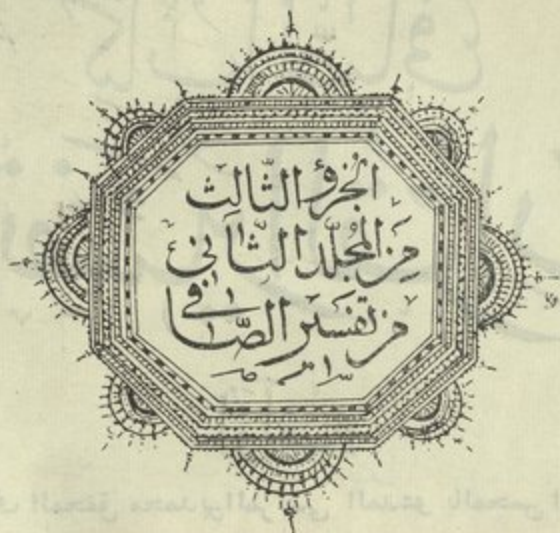 الجزؤ الثالث
مِنَ المُجلّد الثّاني
من تفسير الصّافي